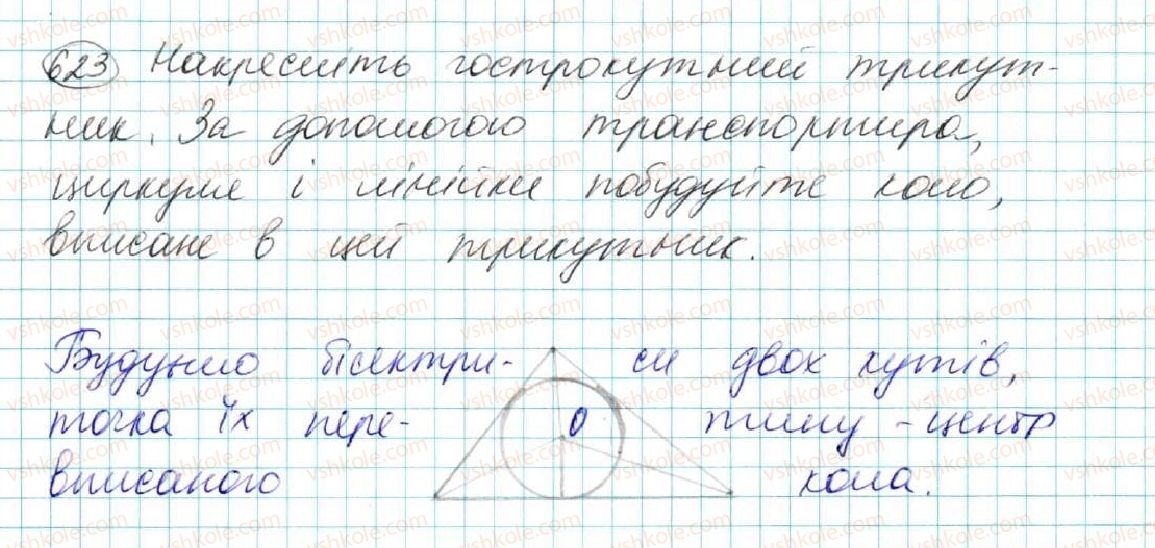 623 Накресліть гострокутний трикут-
ник. За допомогою транспортира,
циркуля і лінійки побудуйте коло,
вписане в цей трикутник.
Будуємо бісектри- си двох кутів,
точка їх пере- тину - центр
вписаного кола.
O